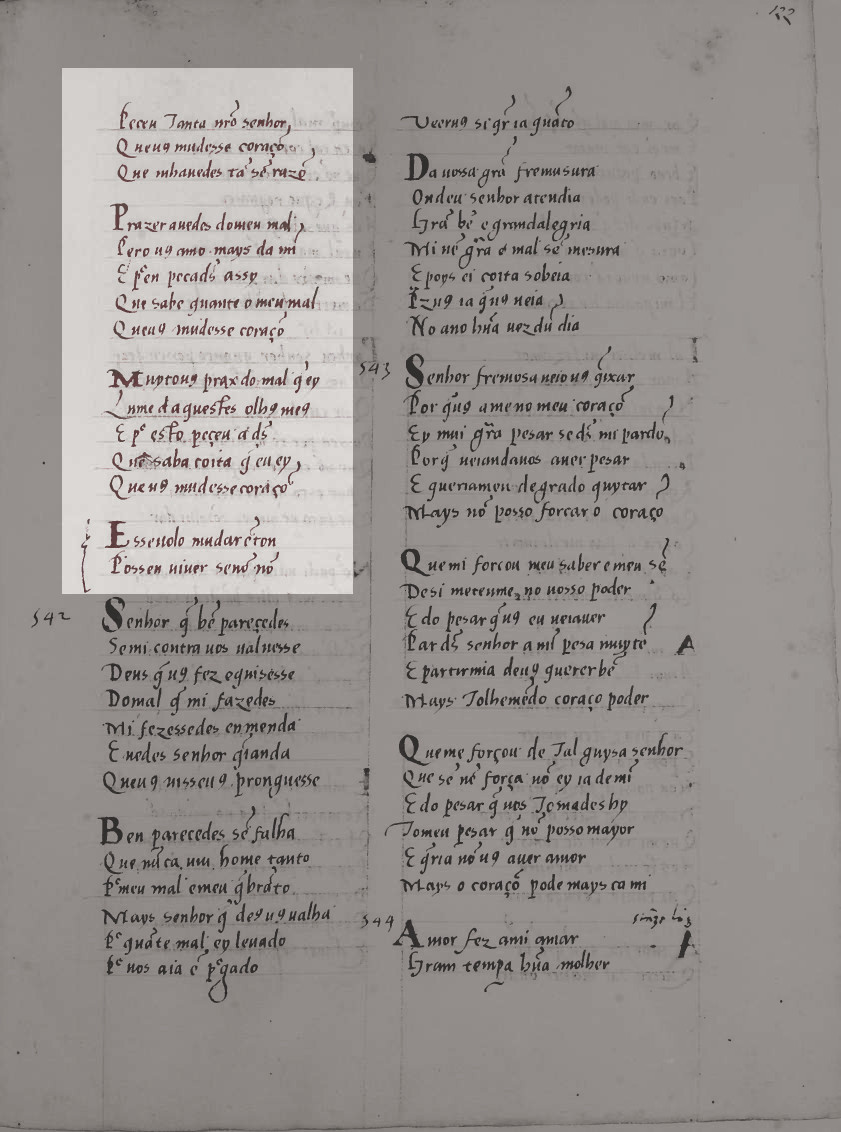 122
Peceu Tanta nr̃o senhor,
Queuꝯ mudesse coraçõ
Que mhauedes tã sẽ razõ
Prazer auedes domeu mal
Pero uꝯ amo mays da mĩ
E p̃en pecads̃ assy
Que sabe quante o meu mal
Queuꝯ mudesse coraçõ
Muytouꝯ praz do mal q̃ ey
Lume daquestes olhꝯ meꝯ
E p̃ esto peçeu a ds̃
Que saba coita q̃ eu ey,
Que uꝯ mudesse coraçõ
Esseuolo mudar cõton
Possen uiuer senõ nõ
542
Senhor q̃ bẽ pareçedes
Semi contra uos ualuesse
Deus q̃ uꝯ fez eguisesse
Domal q̃ mi fazedes
Mi fezessedes enmenda
E uedes senhor q̃ianda
Queuꝯ uisseuꝯ prouguesse
Ben parecedes sẽ falha
Que nũca uiu home tanto
P̃ meu mal emeu q̃brãto
Mays senhor q̃ deꝯ uꝯ ualha
P̃ quãte mal ey leuado
P̃ uos aia ẽ p̃gado
Veeruꝯ si q̃r ia quãto
Da uossa grã fremusura
Ondeu senhor atendia
Gram bẽ e grandalegria
Mi uẽ grã e mal sẽ mesura
E poys ei coita sobeia
Pzuꝯ ia q̃uꝯ ueia
No ano hũa uez dũ dia
543
Senhor fremosa ueiouꝯ q̃ixar
Por q̃uꝯ ameno meu coraçõ
Ey mui grã pesar se ds̃ mi pardõ,
Porq̃ ueiandauos auer pesar
E queriameu degrado quytar
Mays nõ posso forcar o coraço
Que mi forcou meu saber e meu sẽ
Desi meteume no uosso poder
E do pesar q̃uꝯ eu ueiauer
Par ds̃ senhor a mĩ pesa muytẽ
E partirmia deuꝯ quererbẽ
Mays Tolhemẽdo coraço poder
A
Queme forçou de Tal guysa senhor
Que sẽ nẽ força nõ ey ia de mĩ
E do pesar q̃ uos Tomades hy
Tomeu pesar q̃ nõ posso mayor
E q̃ria nõ uꝯ auer amor
Mays o coraçõ pode mays ca mi
544
Amor fez ami amar
Gram tempa hũa molher
A